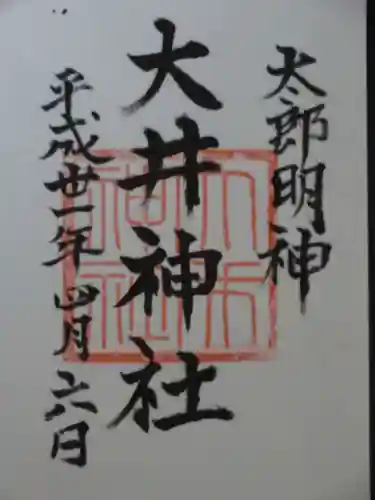 太郎明神
大井神社
平成卅一年四月六日